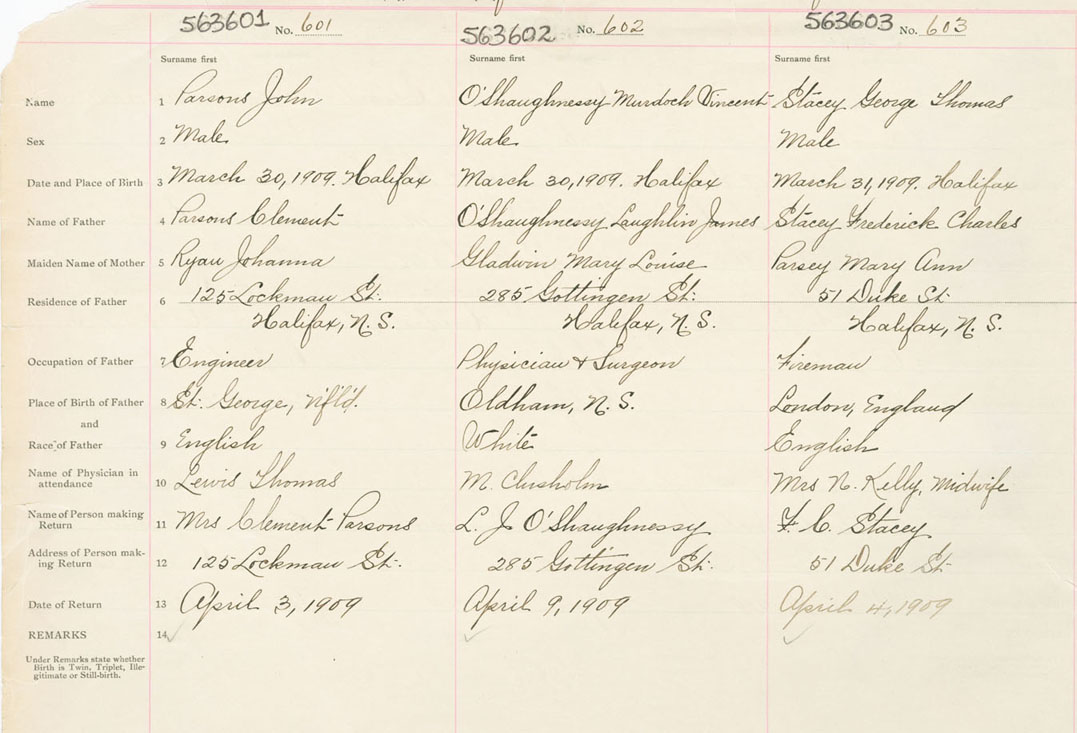 563601 No. 601 563602 No. 602 563603 No. 603
Surname first Surname first Surname first
Name 1 Parsons John O'Shaughnessy Murdoch Vincent Stacey George Thomas
Sex 2 Male Male Male
Date and Place of Birth 3 March 30, 1909. Halifax March 30, 1909. Halifax March 31, 1909. Halifax
Name of Father 4 Parsons Clement O'Shaughnessy Laughlin James Stacey Frederick Charles
Maiden Name of Mother 5 Ryan Johanna Gladwin Mary Louise Parsey Mary Ann
Residence of Father 6 125 Lockman St. 285 Gottingen St. 51 Duke St
Halifax, N. S. Halifax, N. S. Halifax, N. S.
Occupation of Father 7 Engineer Physician & Surgeon Fireman
Place of Birth of Father 8 St. George, Nfl'd. Oldham, N. S. London, England
and
Race of Father 9 English White English
Name of Physician in
attendance 10 Lewis Thomas M. Chisholm Mrs N. Kelly, Midwife
Name of Person making
Return 11 Mrs Clement Parsons L. J. O'Shaughnessy F. C. Stacey
Address of Person mak-
ing Return 12 125 Lockman St. 285 Gottingen St. 51 Duke St
Date of Return 13 April 3, 1909 April 9, 1909 April 4, 1909
REMARKS 14
Under Remarks state whether
Birth is Twin, Triplet, Ille-
gitimate or Still-birth.